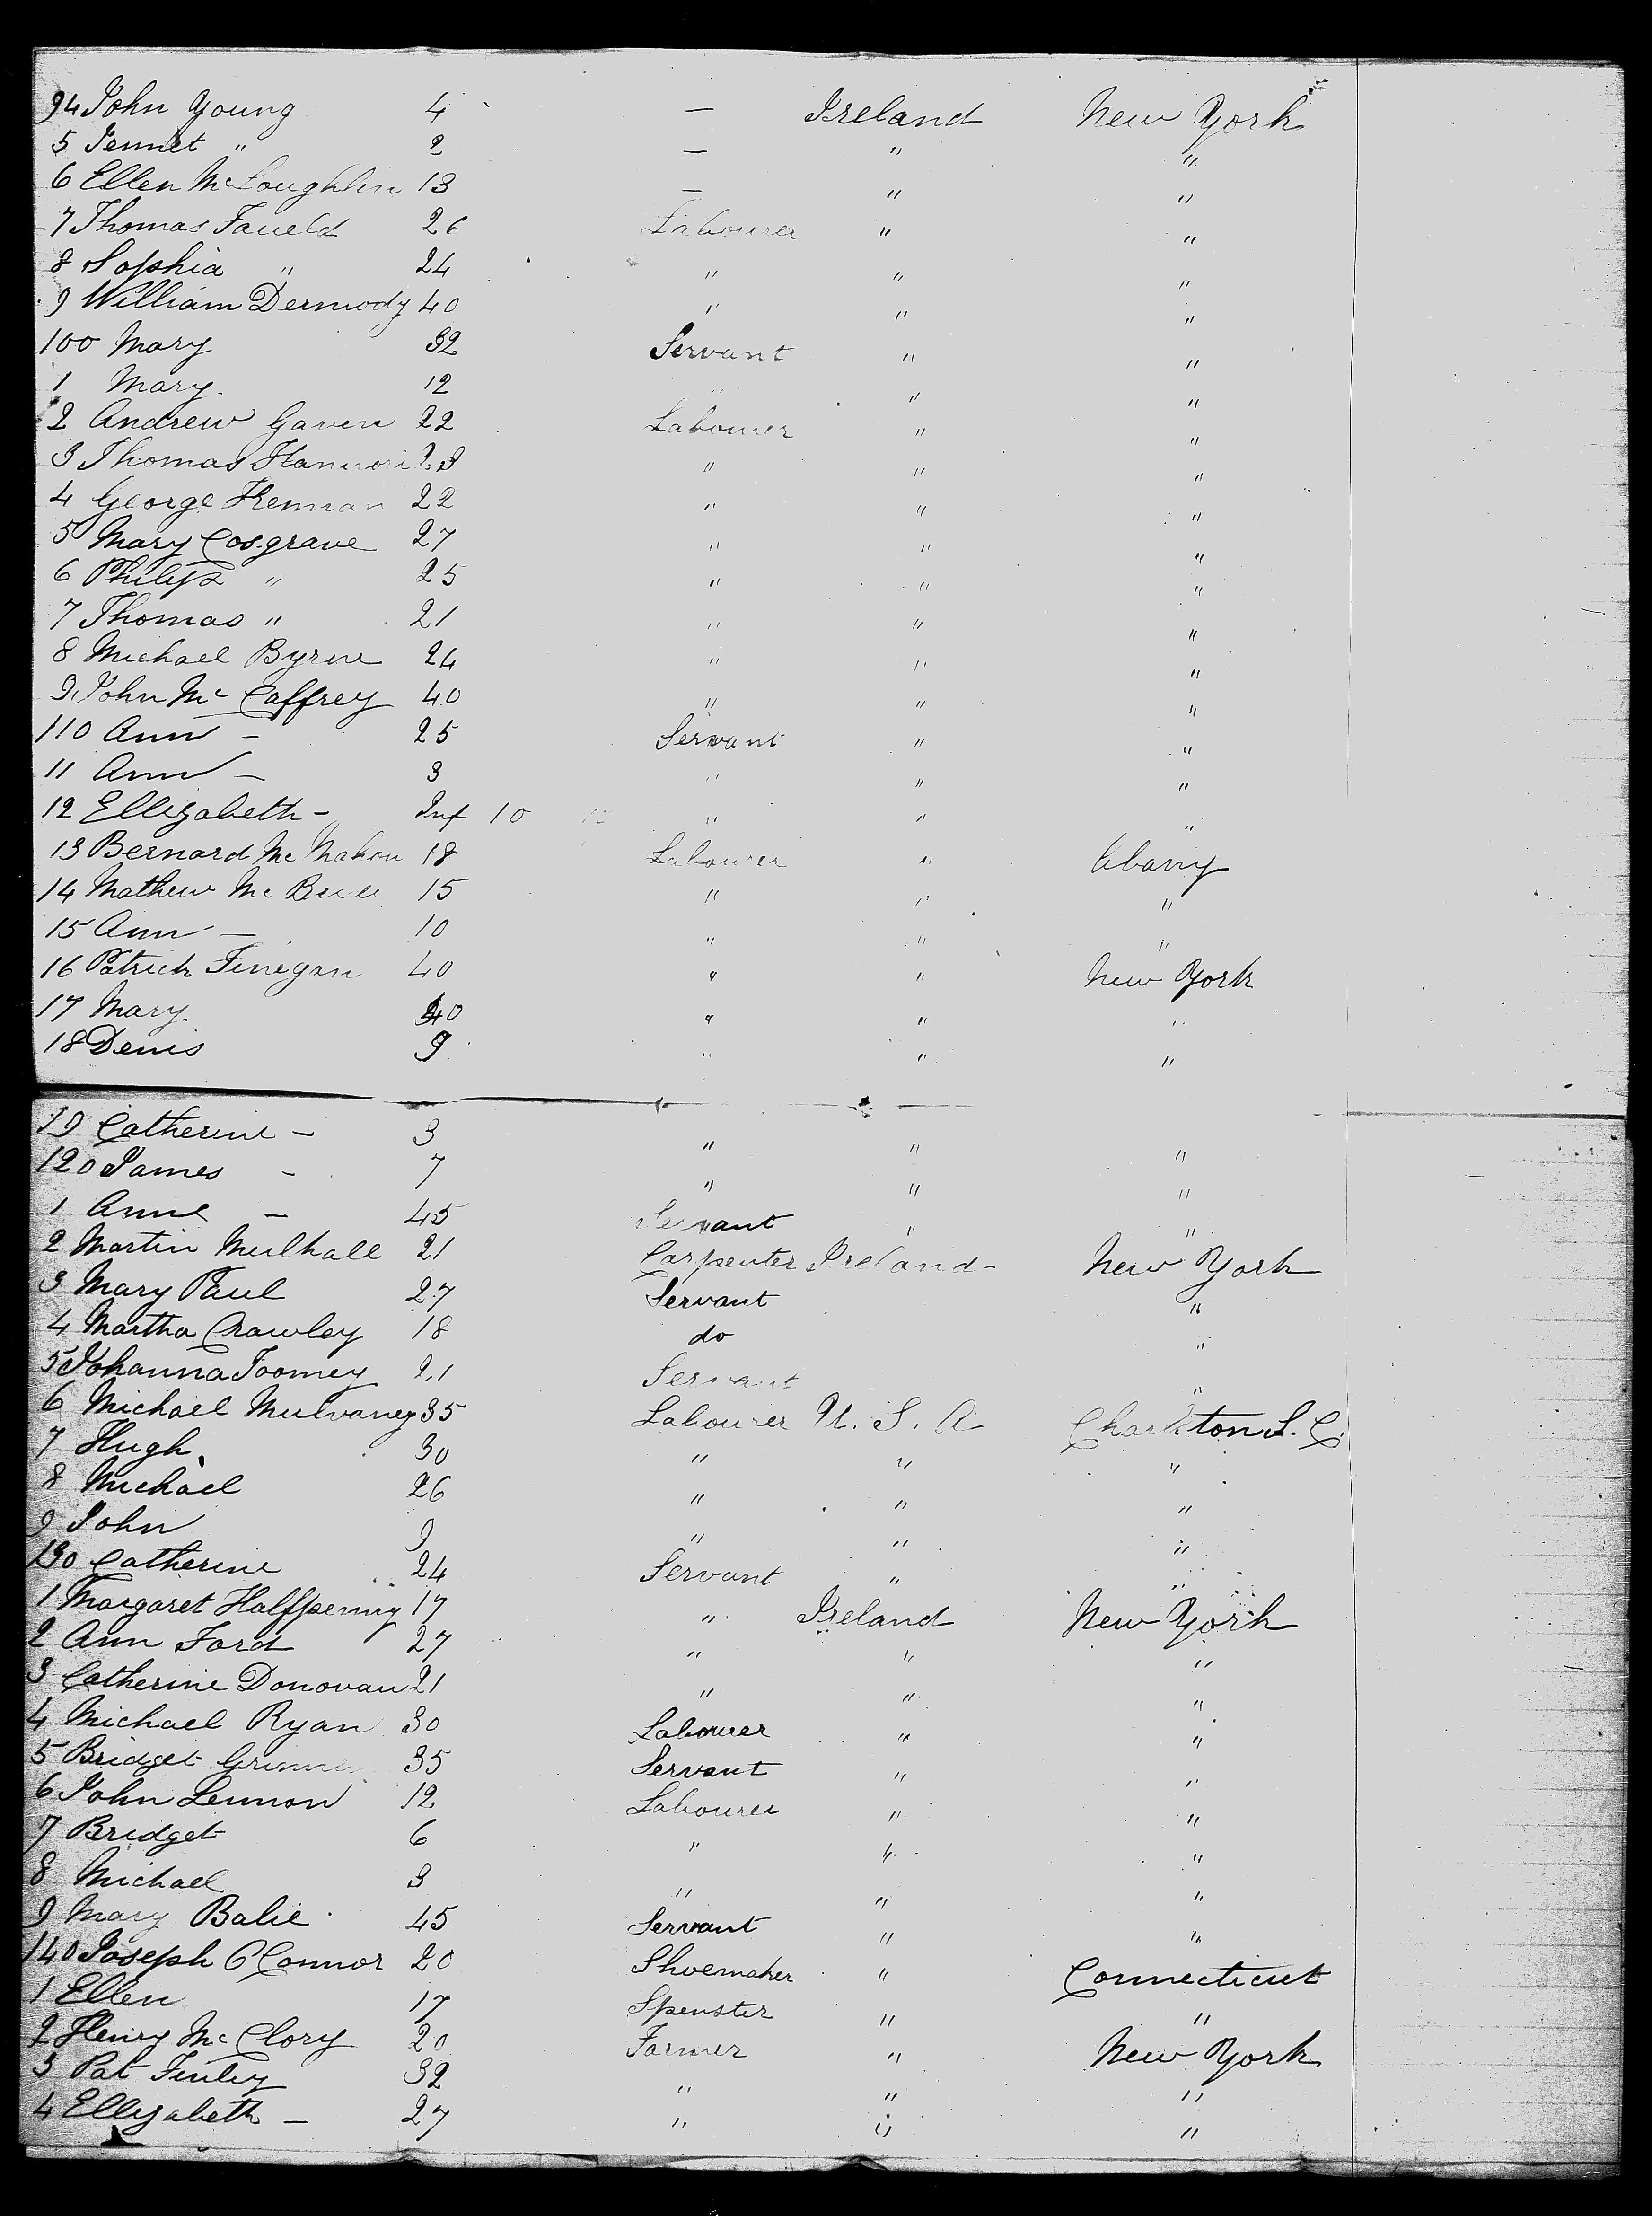 94 John Young 4 — Ireland New York
5 Jennet " 2 — " "
6 Ellen McLoughlin 13 — " "
7 Thomas 26 Labourer " "
8 Sophia " 24 " " "
9 William Dermody 40 " " "
100 Mary 32 Servant " "
1 Mary 12 " " "
2 Andrew Gaven 22 Labourer " "
3 Thomas 23 " " "
4 George 22 " " "
5 Mary Cosgrave 27 " " "
6 Philip " 25 " " "
7 Thomas " 21 " " "
8 Michael Byrne 24 " " "
9 John McCaffrey 40 " " "
110 Ann — 25 Servant " "
11 Ann — 3 " " "
12 Ellizabeth — Inf 10 " " "
13 Bernard McMahon 18 Labourer " Albany
14 Mathew Mc 15 " " "
15 Ann — 10 " " "
16 Patrick Finegan 40 " " New York
17 Mary 40 " " "
18 Denis 9 " " "
19 Catherine — 3 " " "
120 James — 7 " " "
1 Anne — 45 Servant " "
2 Martin Mulhall 21 Carpenter Ireland — New York
3 Mary Paul 27 Servant "
4 Martha Crawley 18 do "
5 Johanna Toomey 21 Servant "
6 Michael Mulvaney 35 Labourer U. S. A Charleston S. C.
7 Hugh 30 " " "
8 Michael 26 " " "
9 John 9 " " "
130 Catherine 24 Servant " "
1 Margaret Halfpenny 17 " Ireland New York
2 Ann Ford 27 " " "
3 Catherine Donovan 21 " " "
4 Michael Ryan 30 Labourer " "
5 Bridget 35 Servant " "
6 John Lennon 12 Labourer " "
7 Bridget 6 " " "
8 Michael 3 " " "
9 Mary Balie 45 Servant " "
140 Joseph OConnor 20 Shoemaker " Connecticut
1 Ellen 17 Spenster " "
2 Henry McClory 20 Farmer " New York
3 Pat Finley 32 " " "
4 Ellizabeth — 27 " " "